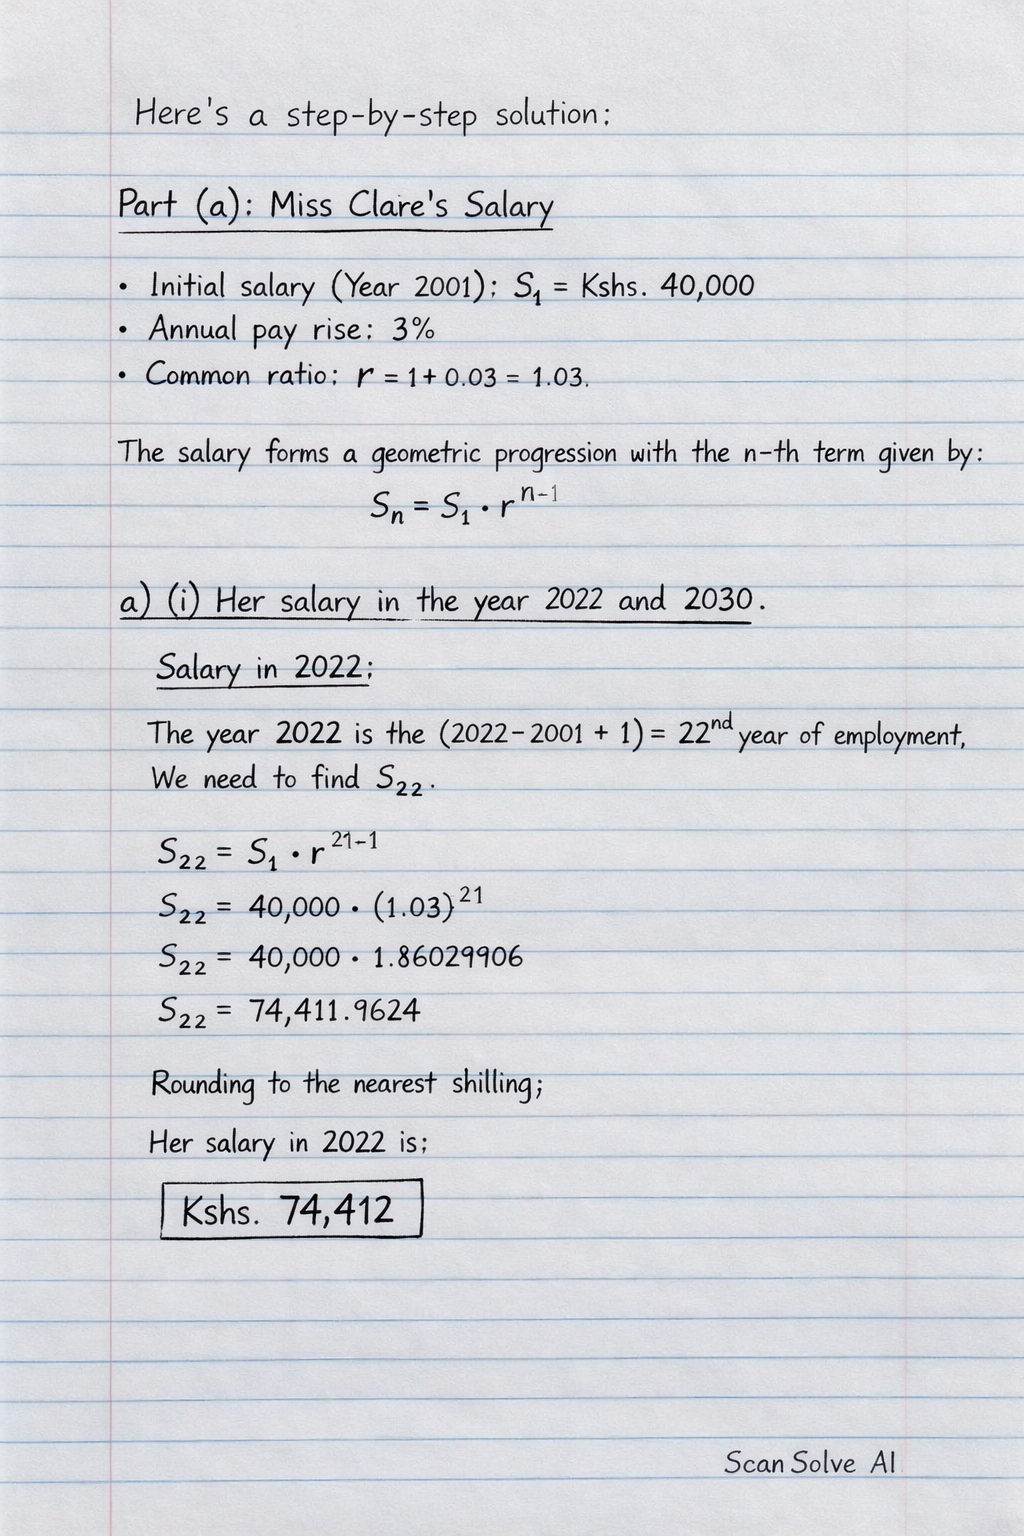 Here's a step-by-step solution:
Part (a): Miss Claire's Salary
• Initial salary (Year 2001): S₁ = Kshs. 40,000
• Annual pay rise: 3%
• Common ratio: r = 1 + 0.03 = 1.03.
The salary forms a geometric progression with the n-th term given by:
Sₙ = S₁ · rⁿ⁻¹
a) (i) Her salary in the year 2022 and 2030.
Salary in 2022:
The year 2022 is the (2022 - 2001 + 1) = 22ⁿᵈ year of employment,
We need to find S₂₂.
S₂₂ = S₁ · r²¹⁻¹
S₂₂ = 40,000 · (1.03)²¹
S₂₂ = 40,000 · 1.86029906
S₂₂ = 74,411.9624
Rounding to the nearest shilling;
Her salary in 2022 is;
Kshs. 74,412
Scan Solve AI